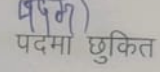 पदमा छुकित